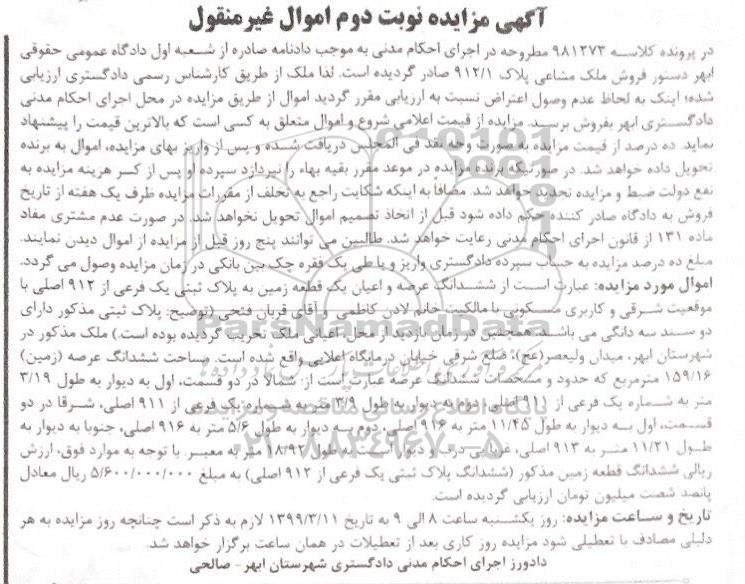 آگهی مزایده نوبت دوم اموال غیرمنقول
در پرونده کلاسه ۹۸۱۲۷۳ مطروحه در اجرای احکام مدنی به موجب دادنامه صادره از شعبه اول دادگاه عمومی حقوقی
ابهر دستور فروش ملک مشاعی پلاک ۹۱۲/۱ صادر گردیده است. لذا ملک از طریق کارشناس رسمی دادگستری ارزیابی
شده؛ اینک به لحاظ عدم وصول اعتراض نسبت به ارزیابی مقرر گردید اموال از طریق مزایده در محل اجرای احکام مدنی
دادگستری ابهر بفروش برسد. مزایده از قیمت اعلامی شروع و اموال متعلق به کسی است که بالاترین قیمت را پیشنهاد
نماید. ده درصد از قیمت مزایده به صورت وجه نقد فی المجلس دریافت شده و پس از واریز بهای مزایده، اموال به برنده
تحویل داده خواهد شد. در صورتیکه برنده مزایده در موعد مقرر بقیه بهاء را نپردازد سپرده او پس از کسر هزینه مزایده به
نفع دولت ضبط و مزایده تجدید خواهد شد. مضافاً به اینکه شکایت راجع به تخلف از مقررات مزایده ظرف یک هفته از تاریخ
فروش به دادگاه صادر کننده حکم داده شود قبل از اتخاذ تصمیم اموال تحویل نخواهد شد. در صورت عدم مشتری مفاد
ماده ۱۳۱ از قانون اجرای احکام مدنی رعایت خواهد شد. طالبین می توانند پنج روز قبل از مزایده از اموال دیدن نمایند.
مبلغ ده درصد مزایده به حساب سپرده دادگستری واریز و یا طی یک فقره چک بین بانکی در زمان مزایده وصول می گردد.
اموال مورد مزایده: عبارت است از ششدانگ عرصه و اعیان یک قطعه زمین به پلاک ثبتی یک فرعی از ۹۱۲ اصلی با
موقعیت شرقی و کاربری مسکونی با مالکیت خانم لادن کاظمی و آقای قربان فتحی (توضیح: پلاک ثبتی مذکور دارای
دو سند سه دانگی می باشد همچنین در زمان بازدید از محل، اعیانی ملک تخریب گردیده بوده است.) ملک مذکور در
شهرستان ابهر، میدان ولیعصر(عج)؛ ضلع شرقی خیابان درمانگاه اعلایی واقع شده است. مساحت ششدانگ عرصه (زمین)
۱۵۹/۱۶ مترمربع که حدود و مشخصات ششدانگ عرصه عبارت است از: شمالا در دو قسمت، اول به دیوار به طول ۳/۱۹
متر به شماره یک فرعی از ۹۱۱ اصلی، دوم به دیوار به طول ۳/۹ متر به شماره یک فرعی از ۹۱۱ اصلی، شرقا در دو
قسمت، اول به دیوار به طول ۱۱/۴۵ متر به ۹۱۶ اصلی، دوم به دیوار به طول ۵/۶ متر به ۹۱۶ اصلی، جنوبا به دیوار به
طول ۱۱/۲۱ متر به ۹۱۳ اصلی، غربا بی درب و دیوار است به طول ۱۸/۹۲ متر به معبر. با توجه به موارد فوق، ارزش
ریالی ششدانگ قطعه زمین مذکور (ششدانگ پلاک ثبتی یک فرعی از ۹۱۲ اصلی) به مبلغ ۵/۶۰۰/۰۰۰/۰۰۰ ریال معادل
پانصد شصت میلیون تومان ارزیابی گردیده است.
تاریخ و ساعت مزایده: روز یکشنبه ساعت ۸ الی ۹ به تاریخ ۱۳۹۹/۳/۱۱ لازم به ذکر است چنانچه روز مزایده به هر
دلیلی مصادف با تعطیلی شود مزایده روز کاری بعد از تعطیلات در همان ساعت برگزار خواهد شد.
دادورز اجرای احکام مدنی دادگستری شهرستان ابهر- صالحی
ParsNamadData
۰۲۱-۸۸۳۴۹۶۷۰-۵